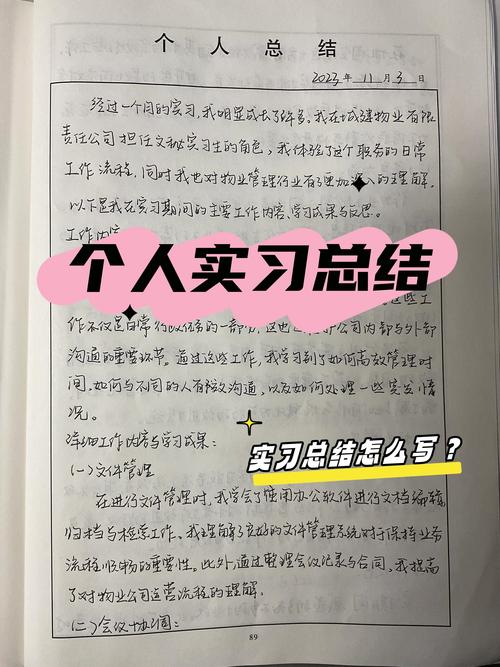 个人总结
2023年11月3日
经过一个月的实习,我明显成长了许多。我在城建物业有限
责任公司担任文秘实习生的角色,我体验了这个职务的日常
工作流程,同时我也对物业管理行业有了更加深入的理解。
以下是我在实习期间的主要工作内容、学习成果与反思。
工作内容
个人实习总结
这些工
作不仅是日常行政任务的一部分,这也是
公司内部与外部
沟通的重要环节。通过这些工作,我学习到了如何高效管理时
间,如何与不同的人有效沟通,以及如何处理一些突发情
况。
详细工作内容与学习成果:
实习总结怎么写?
(一)文件管理
在进行文件管理时,我学会了使用办公软件进行文档编辑
归档与检索工作。我理解了良好的文件管理系统对于保持业务
流程顺畅的重要性。此外,通过整理会议记录与合同,我提高
了对物业公司运营流程的理解。
(二)会议协调:
89